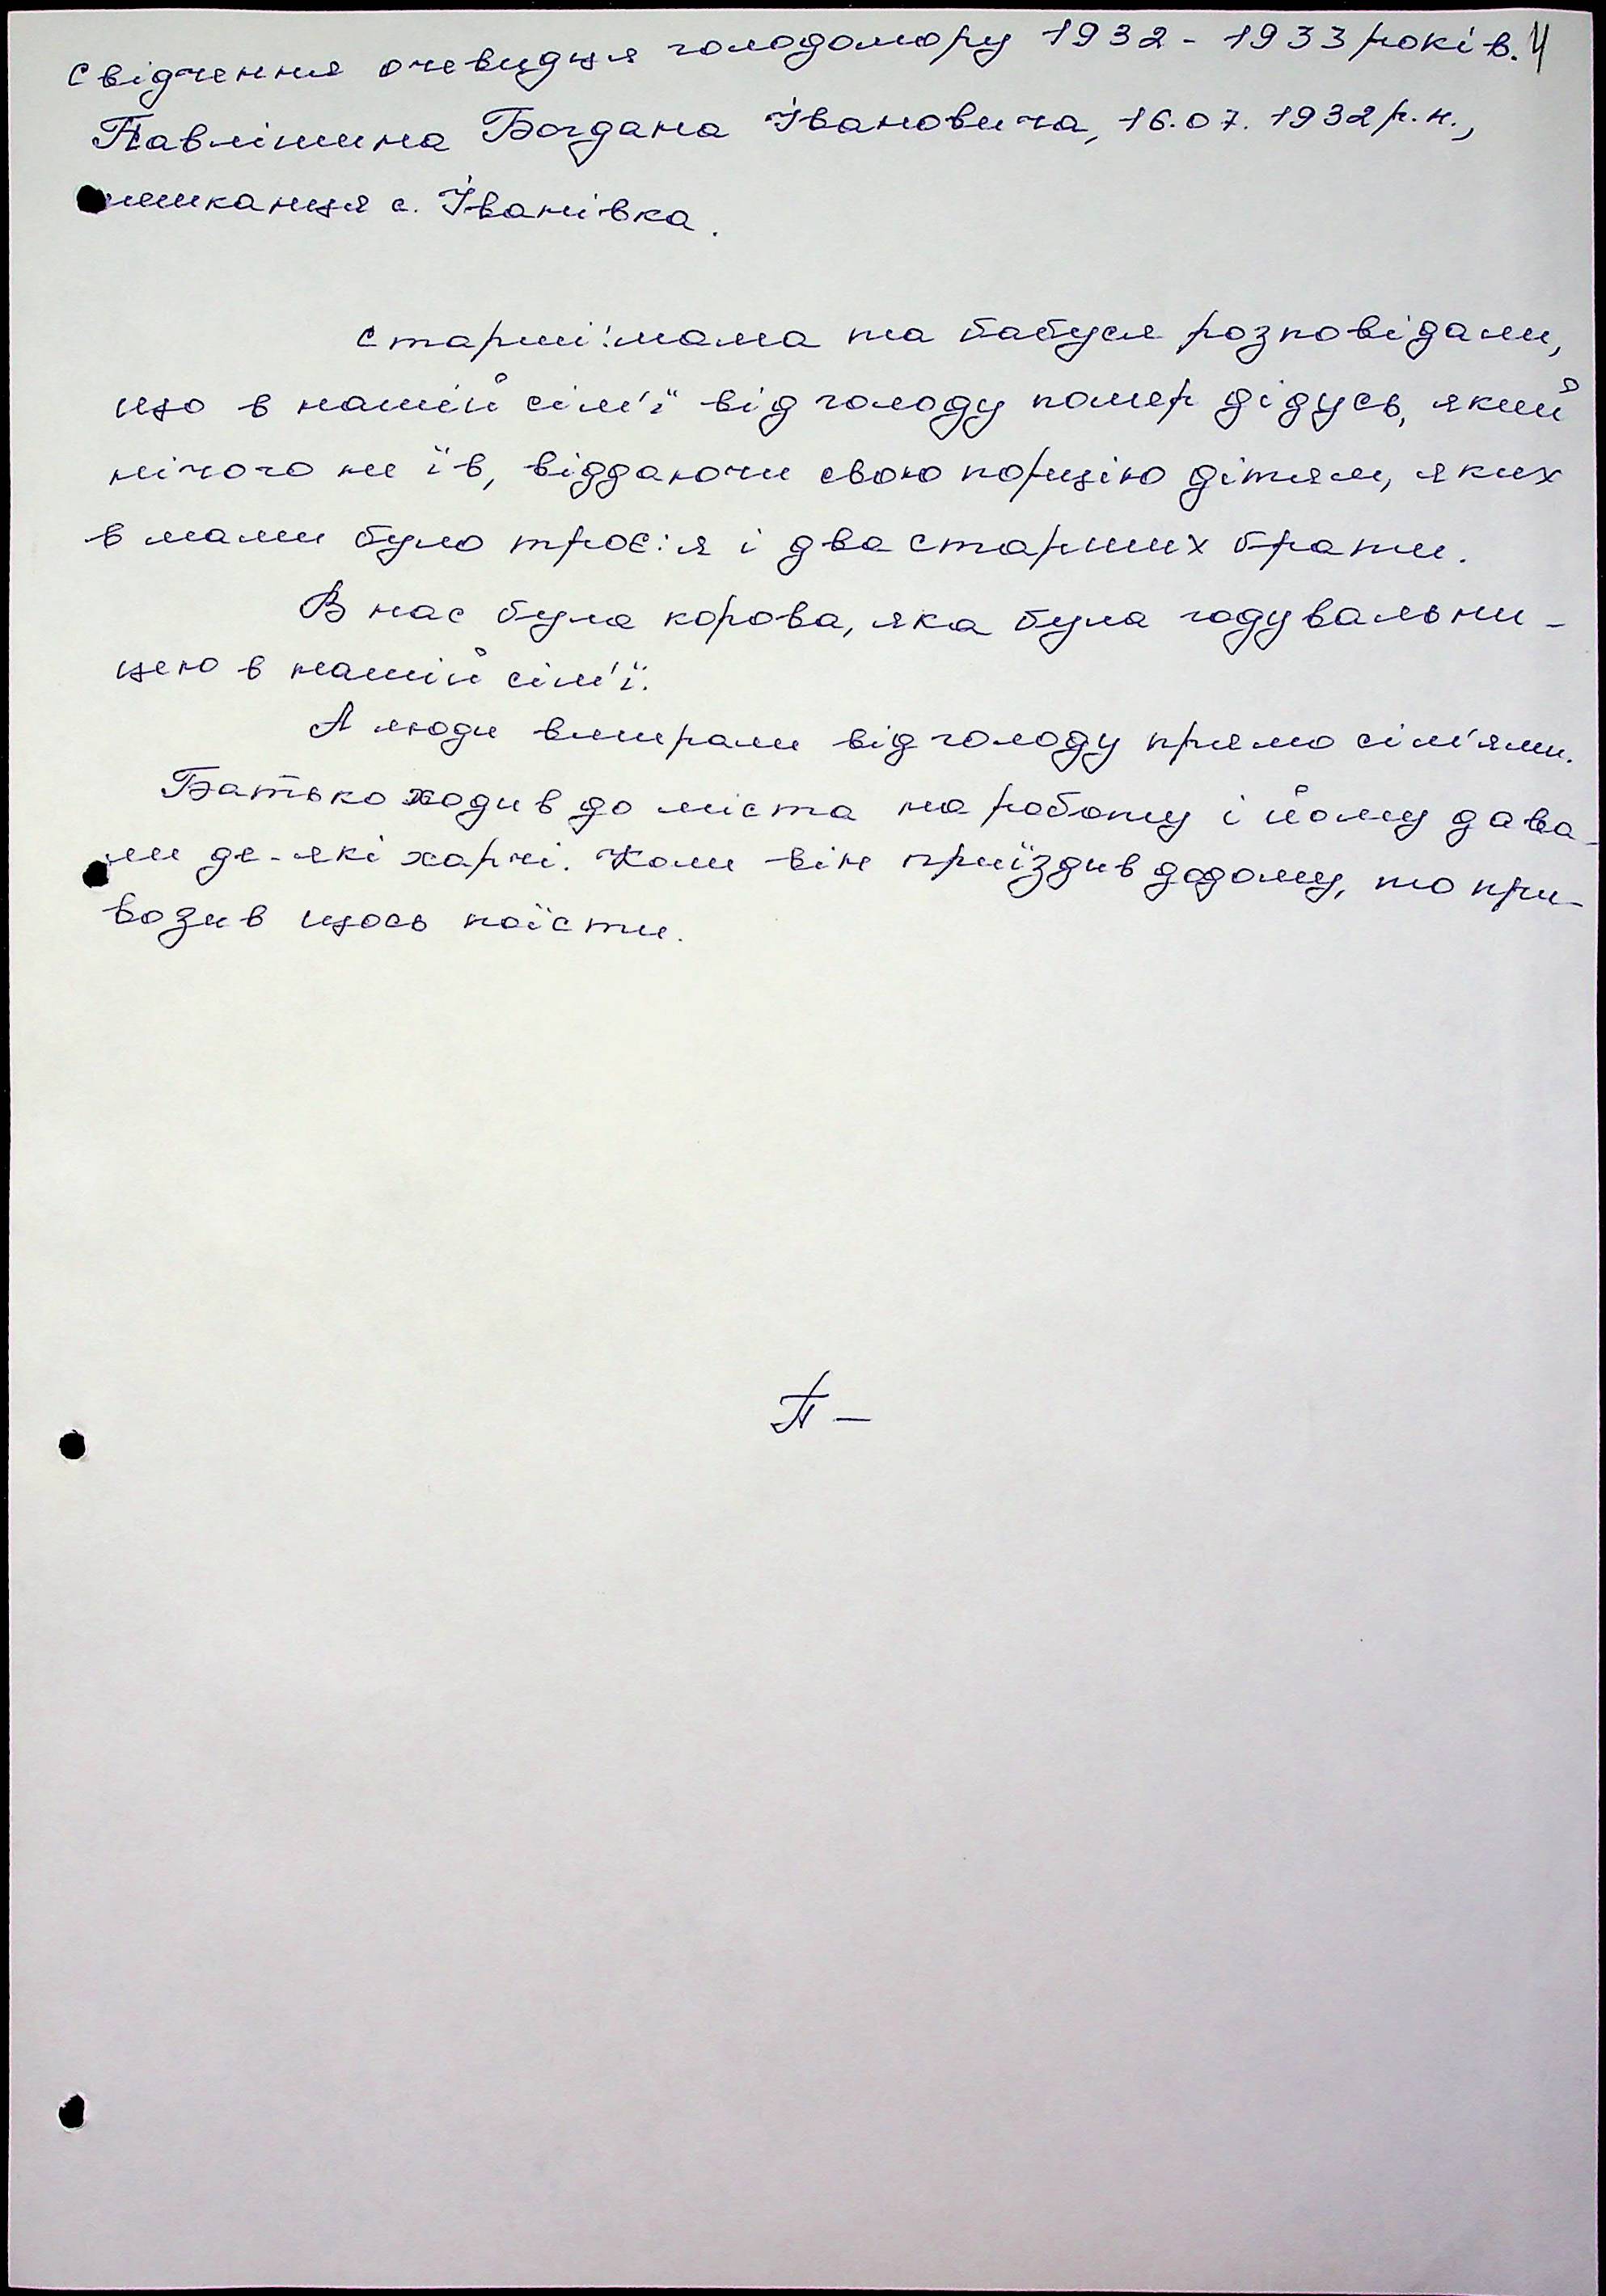 Свідчення очевидця голодомору 1932 - 1933 років. 4
Павлішина Богдана Івановича, 16.07.1932 р.н.,
мешканця с. Іванівка.
Старші: мама та бабуся розповідали,
що в нашій сім'ї від голоду помер дідусь, який
нічого не їв, віддаючи свою порцію дітям, яких
в мами було троє: я і два старших брати.
В нас була корова, яка була годувальни-
цею в нашій сім'ї.
А люди вмирали від голоду прямо сім'ями.
Батько ходив до міста на роботу і йому дава-
ли де-які харчі. Коли він приїздив додому, то при-
возив щось поїсти.
П –